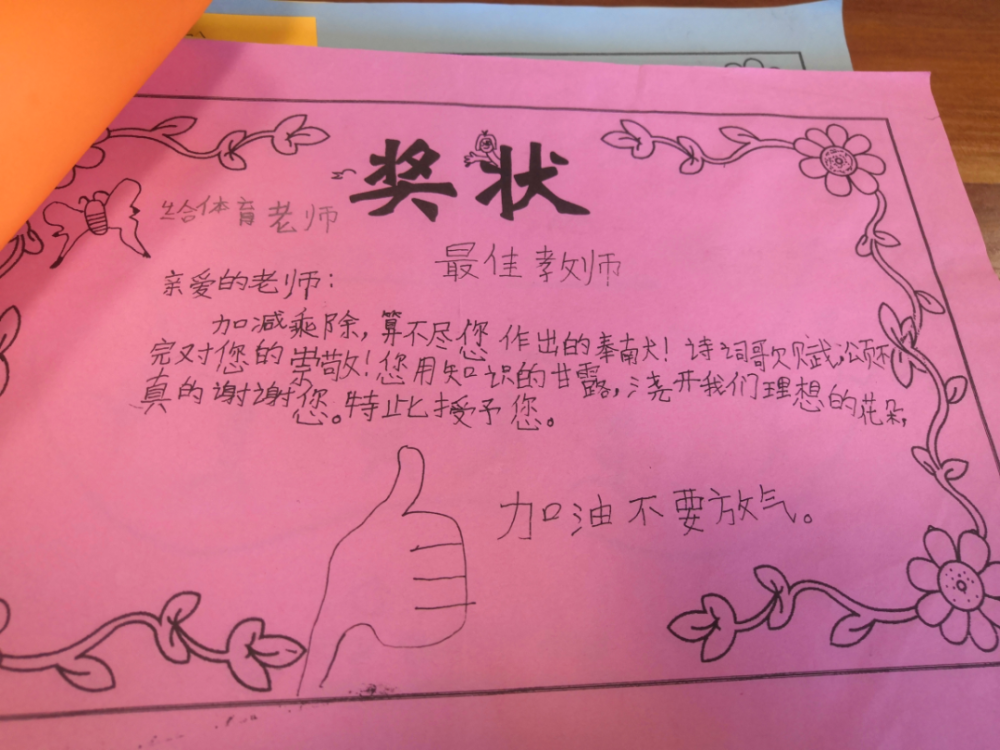 奖状
给体育老师
最佳教师
亲爱的老师：
加减乘除，算不尽您作出的奉献！诗词歌赋，颂不
完对您的崇敬！您用知识的甘露，浇开我们理想的花朵，
真的谢谢您。特此授予您。
加油不要放气。